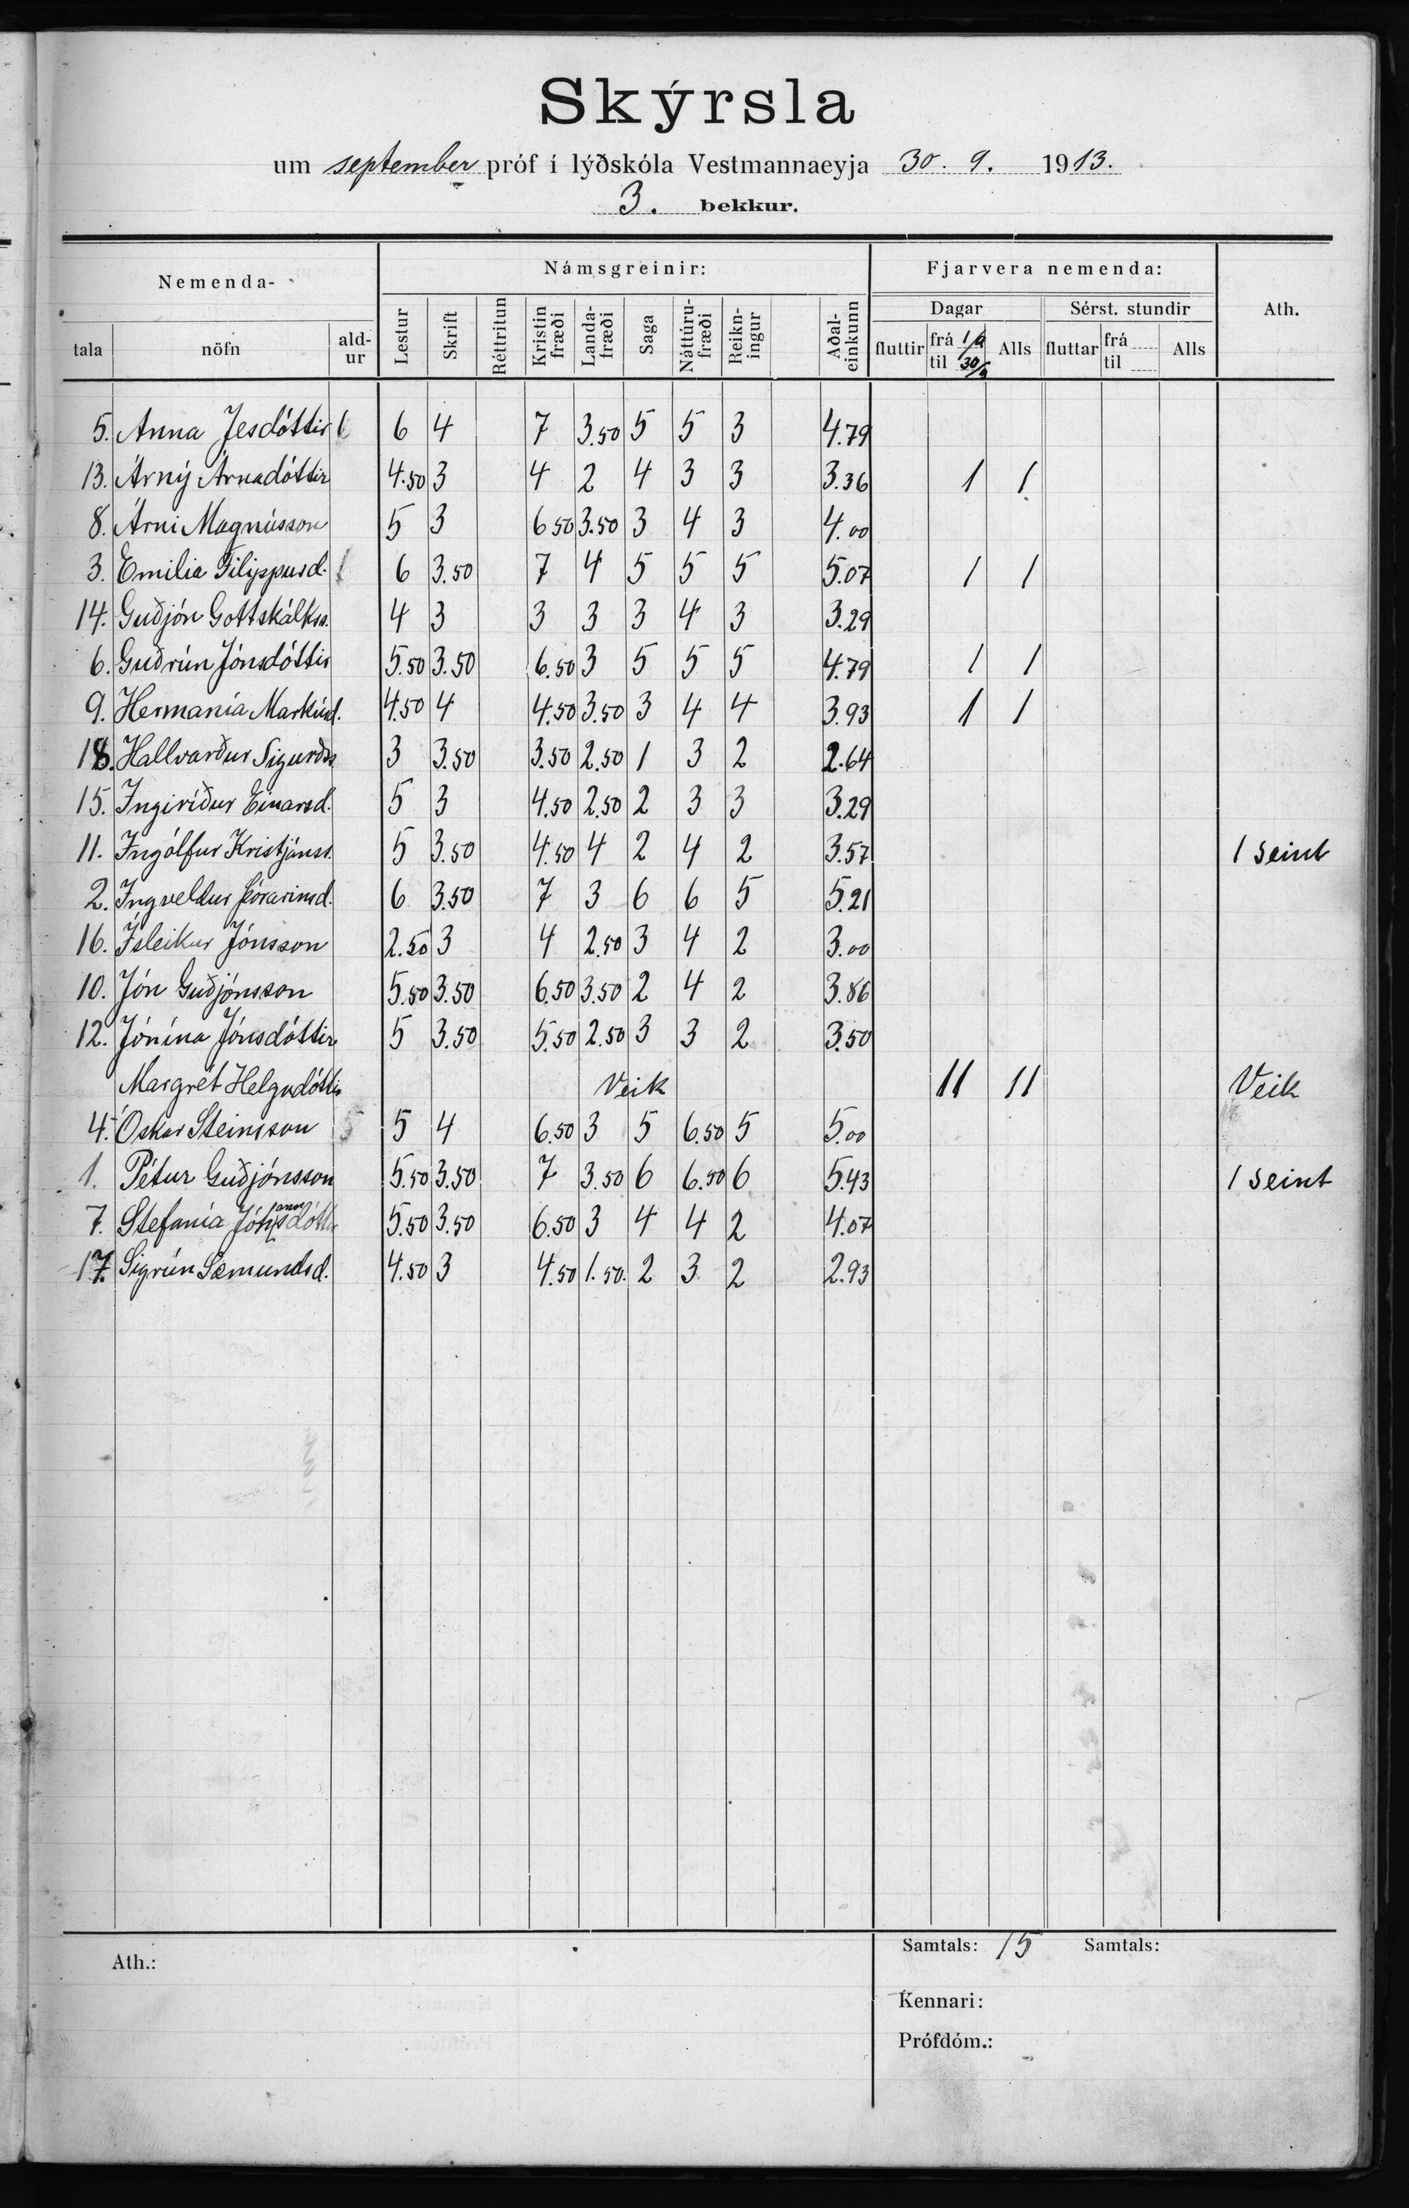 Skýrsla
um september próf í lýðskóla Vestmannaeyja 30. 9. 1913.
3. bekkur.
Nemenda- Námsgreinir: Fjarvera nemenda: Ath.
Dagar Sérst. stundir
tala nöfn ald-ur Lestur Skrift Réttritun Kristin fræði Landa-fræði Saga Náttúru-fræði Reikn-ingur Aðal-einkunn fluttir frá 1/9 til 30/9 Alls fluttar frá til Alls
5. Anna Jesdóttir 6 4 7 3.50 5 5 3 4.79
13. Árný Árnadóttir 4.50 3 4 2 4 3 3 3.36 1 1
8. Árni Magnússon 5 3 6.50 3.50 3 4 3 4.00
3. Emilia Filippusd. 6 3.50 7 4 5 5 5 5.07 1 1
14. Guðjón Gottskálkss. 4 3 3 3 3 4 3 3.29
6. Guðrún Jónsdóttir 5.50 3.50 6.50 3 5 5 5 4.79 1 1
9. Hermanía Markúsd. 4.50 4 4.50 3.50 3 4 4 3.93 1 1
18. Hallvarður Sigurðss. 3 3.50 3.50 2.50 1 3 2 2.64
15. Ingiríður Einarsd. 5 3 4.50 2.50 2 3 3 3.29
11. Ingólfur Kristjánss. 5 3.50 4.50 4 2 4 2 3.57 1 seint
2. Ingveldur Þórarinsd. 6 3.50 7 3 6 6 5 5.21
16. Ísleikur Jónsson 2.50 3 4 2.50 3 4 2 3.00
10. Jón Guðjónsson 5.50 3.50 6.50 3.50 2 4 2 3.86
12. Jónína Jónsdóttir 5 3.50 5.50 2.50 3 3 2 3.50
Margrét Helgadóttir Veik 11 11 Veik
4. Óskar Steinsson 5 4 6.50 3 5 6.50 5 5.00
1. Pétur Guðjónsson 5.50 3.50 7 3.50 6 6.50 6 5.43 1 seint
7. Stefanía Jóhannsdóttir 5.50 3.50 6.50 3 4 4 2 4.07
17. Sigrún Sæmundsd. 4.50 3 4.50 1.50. 2 3 2 2.93
Ath.: Samtals: 15 Samtals:
Kennari:
Prófdóm.: